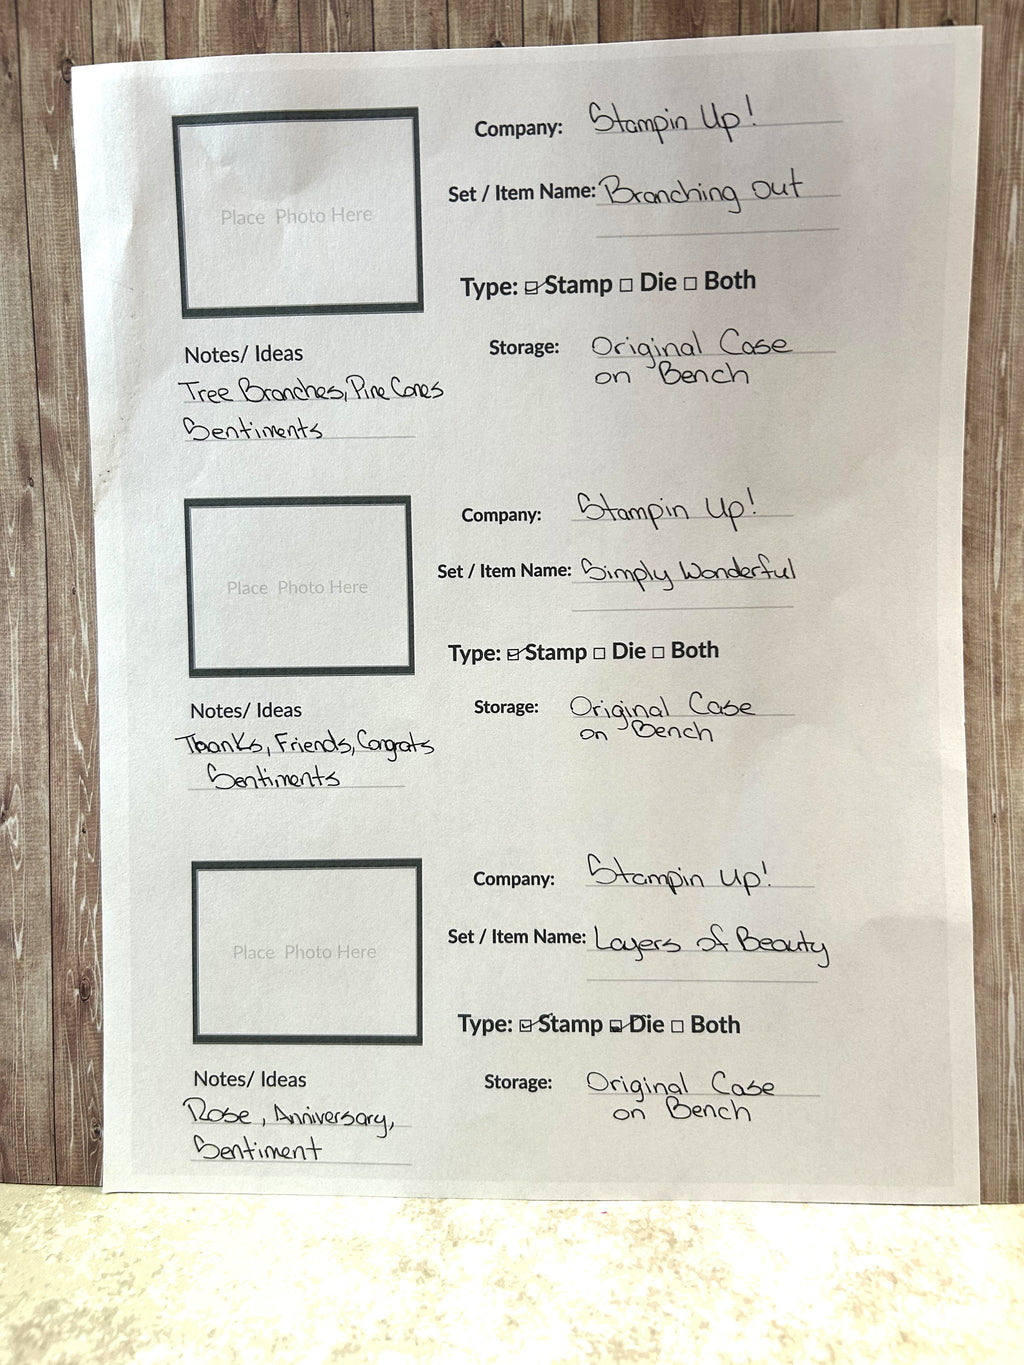 Company: Stampin Up!
Place Photo Here
Set / Item Name: Branching out
Type: ☑ Stamp ☐ Die ☐ Both
Storage: Original Case
on Bench
Notes/ Ideas
Tree Branches, Pine Cones
Sentiments
Company: Stampin Up!
Place Photo Here
Set / Item Name: Simply Wonderful
Type: ☑ Stamp ☐ Die ☐ Both
Storage: Original Case
on Bench
Notes/ Ideas
Thanks, Friends, Congrats
Sentiments
Company: Stampin Up!
Place Photo Here
Set / Item Name: Layers of Beauty
Type: ☑ Stamp ☑ Die ☐ Both
Storage: Original Case
on Bench
Notes/ Ideas
Rose, Anniversary,
Sentiment